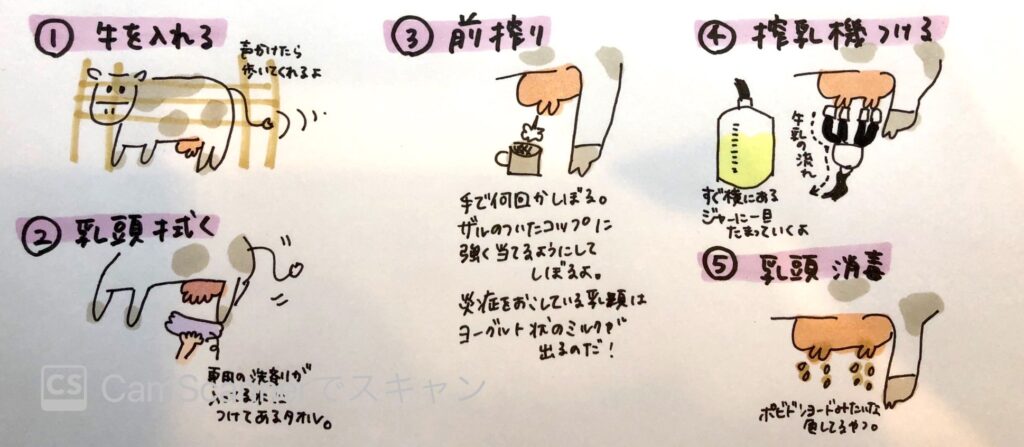 ① 牛を入れる
声かけたら
歩いてくれるよ
② 乳頭拭く
専用の洗剤が
つけてあるタオル。
③ 前搾り
手で何回かしぼる。
ザルのついたコップに
強く当てるようにして
しぼるよ。
炎症をおこしている乳頭は
ヨーグルト状のミルクが
出るのだ!
④ 搾乳機つける
牛乳の流れ
すぐ横にある
ジャーに一旦
たまっていくよ
⑤ 乳頭消毒
ポビドンヨードみたいな
色してるやつ。
CS CamScannerでスキャン